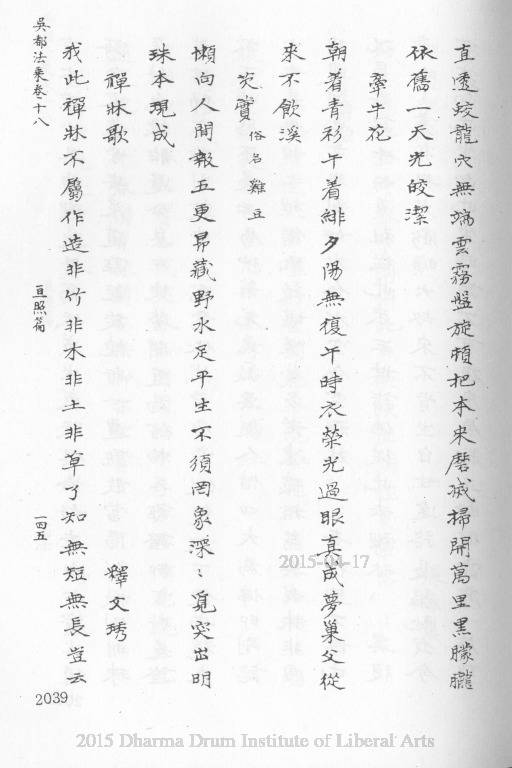 直透蛟龍穴無端雲霧盤旋頓把本來磨滅掃開萬里黑朦朧
依舊一天光皎潔
牽牛花
朝着青衫午着緋夕陽無復午時衣榮光過眼真成夢巢父從
來不飲溪
芡實 俗名雞豆
懶向人間報五更昴藏野水足平生不須罔象深〻覓突出明
珠本現成
禪牀歌 釋文琇
我此禪牀不屬作造非竹非木非土非草了知無短無長豈云
吳都法乘卷十八 亘照篇 一四五
2039
2015-04-17
2015 Dharma Drum Institute of Liberal Arts